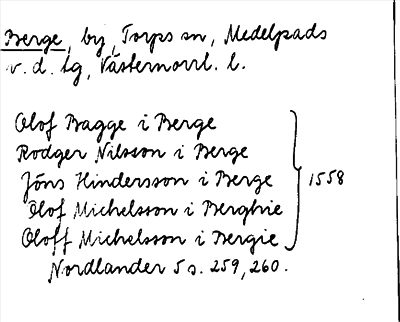 Berge, by, Torps sn, Medelpads
v. d. tg, Västernorrl. l.
Olof Bagge i Berge
Rodger Nilsson i Berge
Jöns Hindersson i Berge
1558
Olof Michelsson i Berghie
Oloff Michelsson i Bergie
Nordlander 5 s. 259, 260.